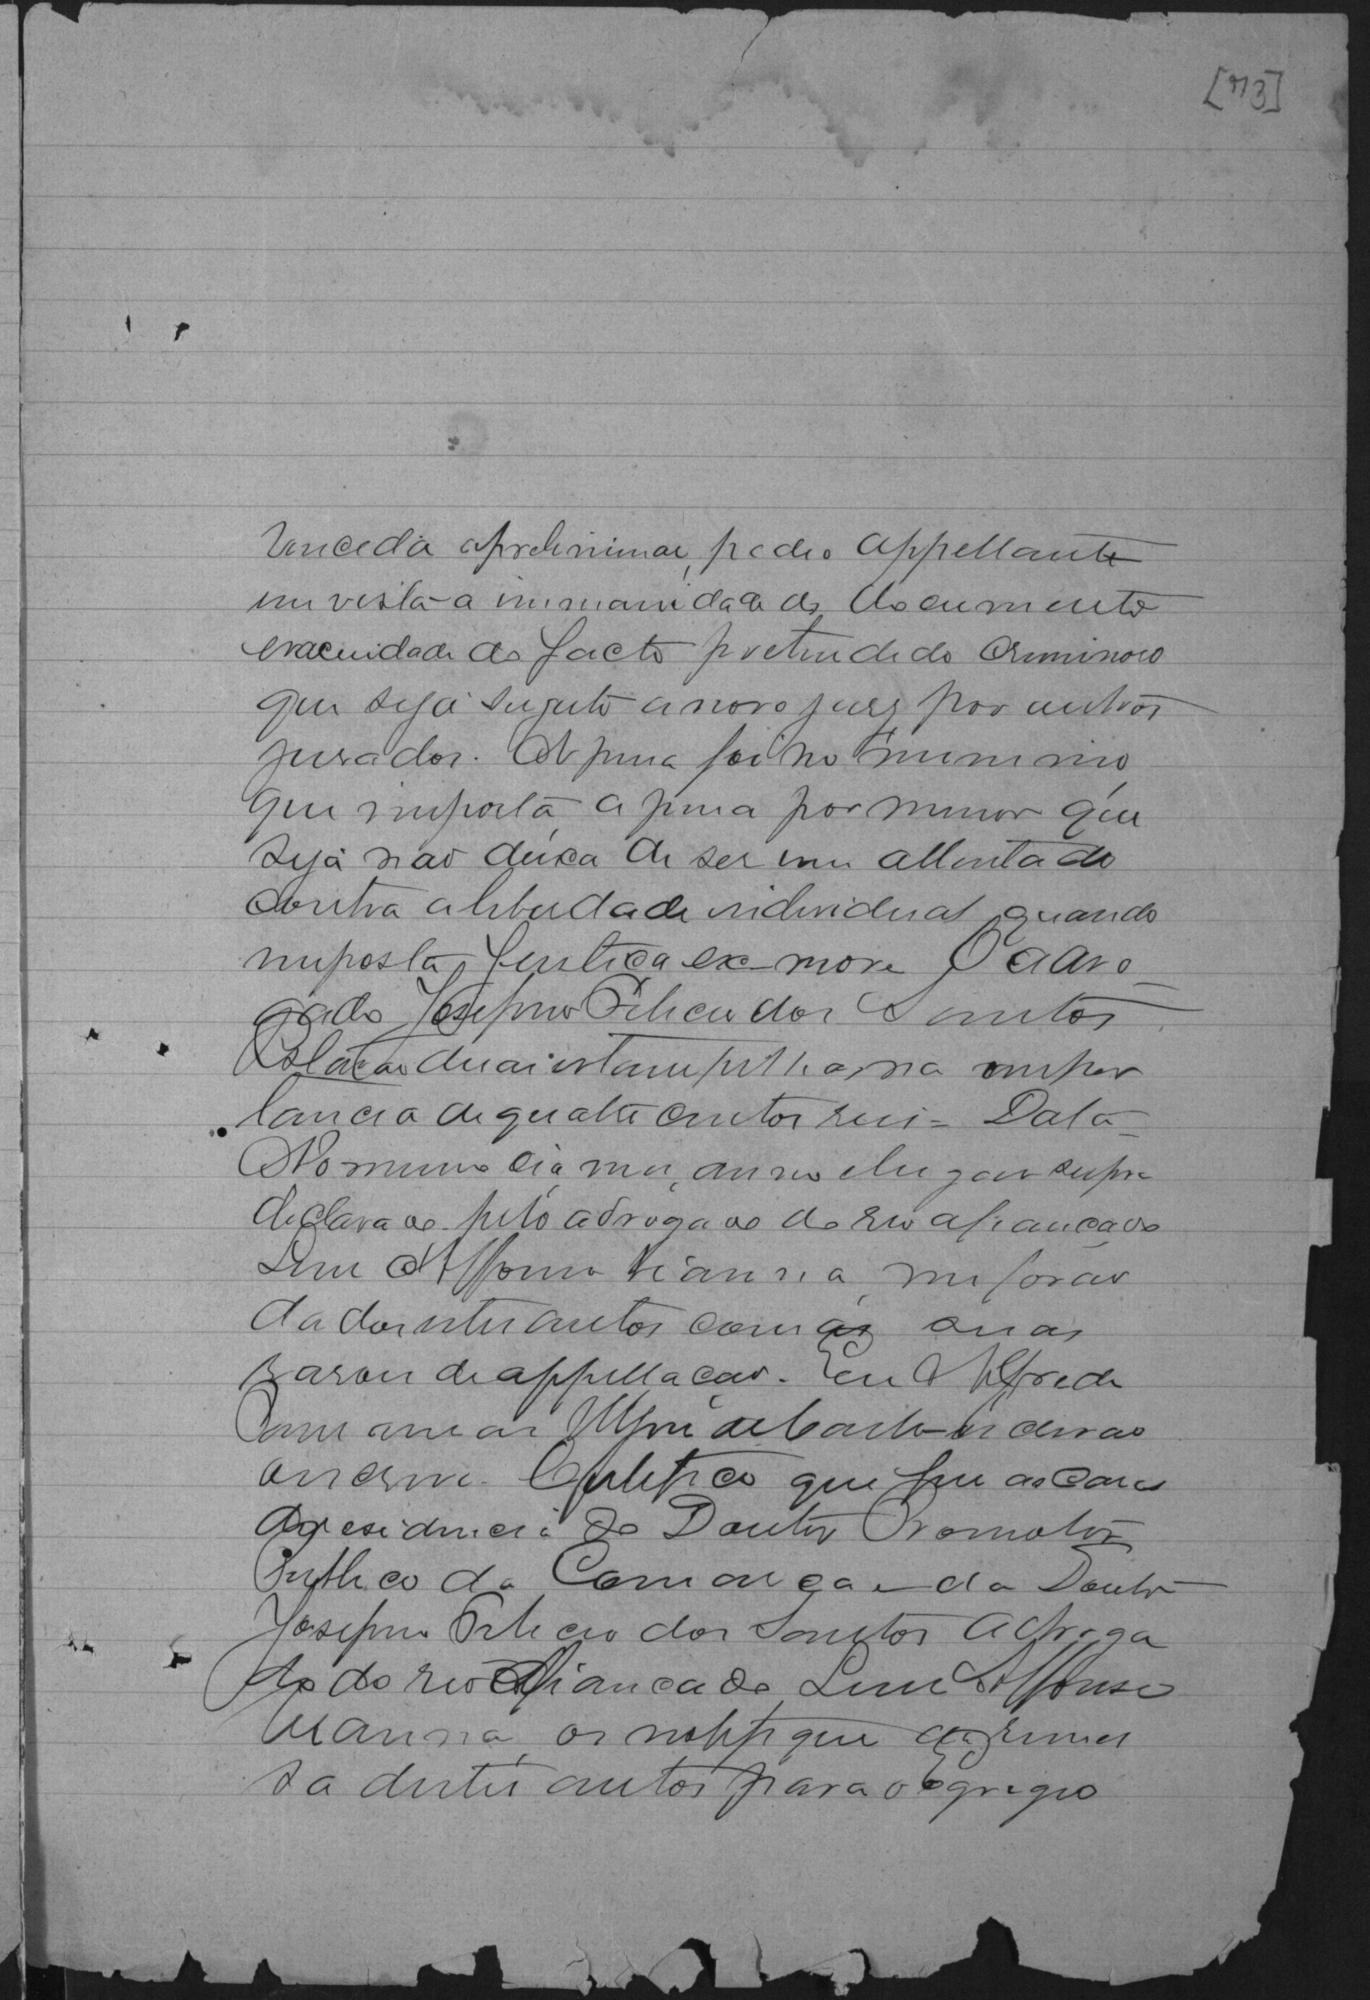 [73]
Vencida a preliminar, pede o appellante
em vista a immanidade do documento
e vacuidade do facto pretendido criminoso
que seja sugeito a novo jury por outros
jurados. A pena foi no minimo,
que importa, a pena por menor que
seja não deixa de ser um attentado
contra a liberdade individual quando
imposta, Justiça ex-more O advo-
gado Josephino Felicio dos Santos
Estavão duas estampilhas na impor
tancia de quatro centos reis = Data =
No mesmo dia, mez, anno e lugar supra
declarado pelo advogado do reo afiançado
Luiz Affonso Vianna, me forão
dados estes autos com as suas
rasoens de appellação. Eu Alfredo
de Castro escrivão
o escrevi. Certifico que fui as casas
da residencia do Doutor Promotor
Publico da Comarca e da Doutor
Josephino Felicio dos Santos advoga
do do reo Afiançado Luiz Affonso
Vianna, os notifiquei da remes
sa destes autos para o Egregio